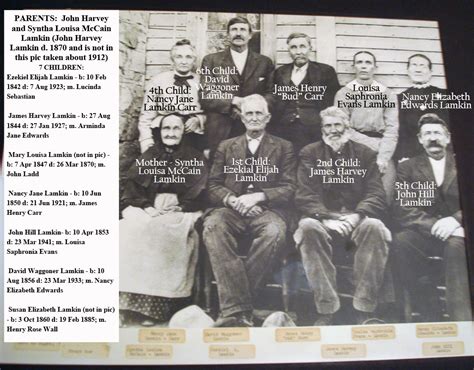 PARENTS: John Harvey
and Syntha Louisa McCain
Lamkin (John Harvey
Lamkin d. 1870 and is not in
this pic taken about 1912)
7 CHILDREN:
Ezekiel Elijah Lamkin - b: 10 Feb
1842 d: 7 Aug 1923; m. Lucinda
Sebastian
James Harvey Lamkin - b: 27 Aug
1844 d: 27 Jan 1927; m. Arminda
Jane Edwards
Mary Louisa Lamkin (not in pic) - b:
7 Apr 1847 d: 26 Mar 1870; m.
John Ladd
Nancy Jane Lamkin - b: 10 Jun
1850 d: 21 Jun 1921; m. James
Henry Carr
John Hill Lamkin- b: 10 Apr 1853
d: 23 Mar 1941; m. Louisa
Saphronia Evans
David Waggoner Lamkin - b: 10
Aug 1856 d: 23 Mar 1933; m. Nancy
Elizabeth Edwards
Susan Elizabeth Lamkin (not in pic)
- b: 3 Oct 1860 d: 19 Feb 1885; m.
Henry Rose Wall
4th Child:
Nancy Jane
Lamkin Carr
6th Child:
David
Waggoner
Lamkin
James Henry
"Bud" Carr
Louisa
Saphronia
Evans Lamkin
Nancy Elizabeth
Edwards Lamkin
Mother - Syntha
Louisa McCain
Lamkin
1st Child:
Ezekial Elijah
Lamkin
2nd Child:
James Harvey
Lamkin
5th Child:
John Hill
Lamkin